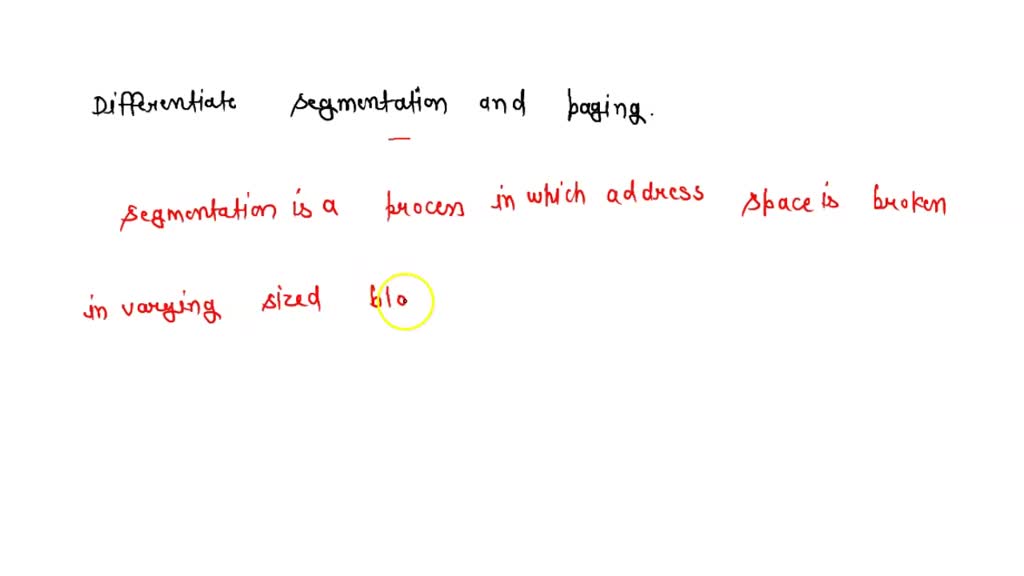 Differentiate segmentation and paging.
segmentation is a process in which address space is broken
in varying sized blo